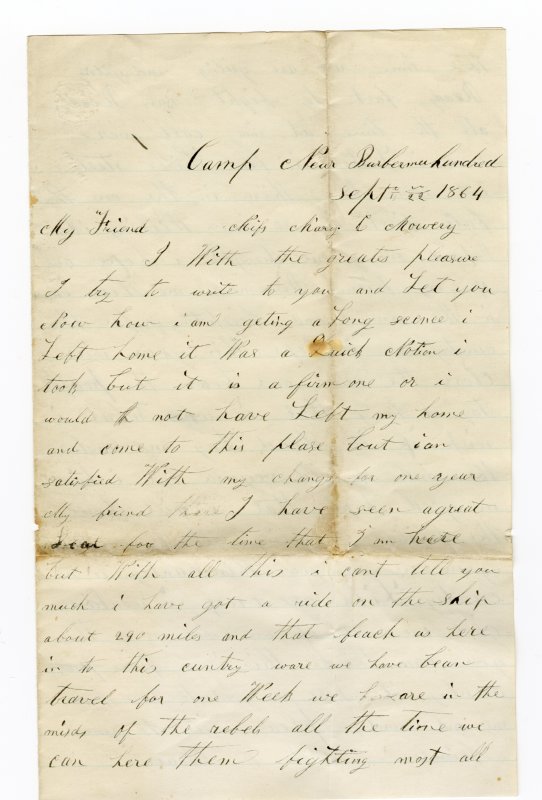 Camp Near Burbermuhundred
Sept 22 1864
My Friend Miss Mary E Mowery
I With the greates pleasure
I try to write to you and Let you
Now how i am geting a Long scince i
Left home it Was a Quick Notion i
took but it is a firm one or i
would not have Left my home
and come to this plase but i an
satisfied With my change for one year
My friend I have seen a great
Deal for the time that I am here
but With all this i cant tell you
much i have got a ride on the ship
about 290 miles and that feach us here
in to this cuntry ware we have bean
travel for one Week we are in the
mids of the rebels all the time we
can here them fighting most all